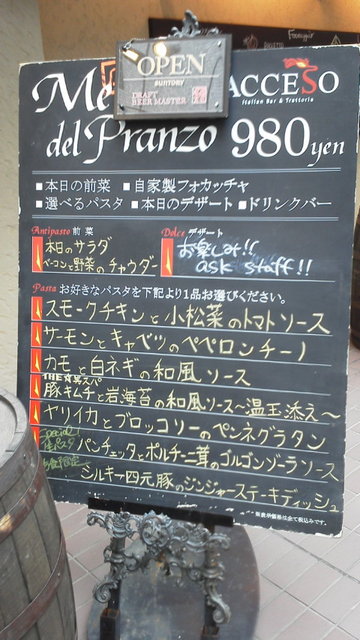 OPEN
SUNTORY
DRAFT
BEER MASTER
ACCESO
Italian Bar & Trattoria
Me
del Pranzo 980yen
■本日の前菜 ■自家製フォカッチャ
■選べるパスタ ■本日のデザート ■ドリンクバー
Antipasto 前菜
本日のサラダ
ベーコンと野菜のチャウダー
Dolce デザート
お楽しみ!!
ask staff!!
Pasta お好きなパスタを下記より1品お選びください。
スモークチキンと小松菜のトマトソース
サーモンとキャベツのペペロンチーノ
カモと白ネギの和風ソース
豚キムチと岩海苔の和風ソース~温玉添え~
ヤリイカとブロッコリーのペンネグラタン
パンチェッタとポルチーニ茸のゴルゴンゾーラソース
シルキー四元豚のジンジャーステーキディッシュ